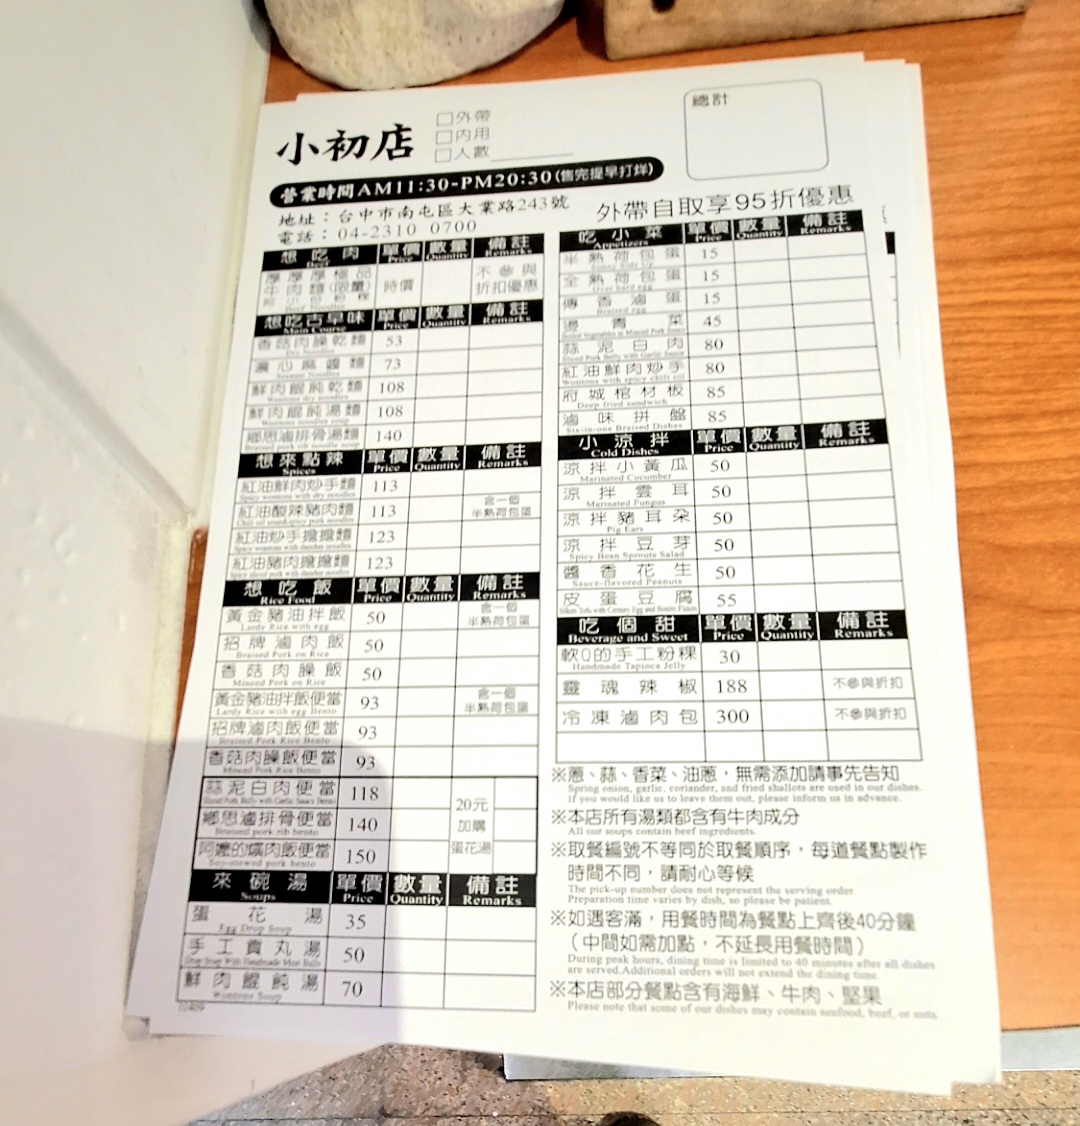 小初店
□外帶
□內用
□人數
總計
營業時間AM11:30-PM20:30(售完提早打烊)
地址：台中市南屯區大業路243號
電話：04-2310 0700
外帶自取享95折優惠
想吃肉 Beef 單價 Price 數量 Quantity 備註 Remarks
厚厚厚極品
牛肉麵(限量)
時價
不參與
折扣優惠
想吃古早味 Main Course 單價 Price 數量 Quantity 備註 Remarks
香菇肉臊乾麵 Dry Noodles 53
麻醬麵 Sesame Noodles 73
鮮肉餛飩乾麵 Wontons dry noodles 108
鮮肉餛飩湯麵 Wontons noodles soup 108
鄉思滷排骨湯麵 140
想來點辣 Spices 單價 Price 數量 Quantity 備註 Remarks
紅油鮮肉炒手麵 Spicy wontons with dry noodles 113
紅油酸辣豬肉麵 113 含一個
半熟荷包蛋
紅油炒手擔擔麵 Spicy wontons with dandan noodles 123
紅油豬肉擔擔麵 123
想吃飯 Rice Food 單價 Price 數量 Quantity 備註 Remarks
黃金豬油拌飯 Lardy Rice with egg 50 含一個
半熟荷包蛋
招牌滷肉飯 Braised Pork on Rice 50
香菇肉臊飯 Minced Pork on Rice 50
黃金豬油拌飯便當 Lardy Rice with egg Bento 93 含一個
半熟荷包蛋
招牌滷肉飯便當 Braised Pork Rice Bento 93
香菇肉臊飯便當 Minced Pork Rice Bento 93
蒜泥白肉便當 Sliced Pork Belly with Garlic Sauce Bento 118
鄉思滷排骨便當 Braised pork rib bento 140
阿嬤的爌肉飯便當 Soy-stewed pork bento 150
20元
加購
蛋花湯
來碗湯 Soups 單價 Price 數量 Quantity 備註 Remarks
蛋花湯 Egg Drop Soup 35
手工貢丸湯 50
鮮肉餛飩湯 Wontons Soup 70
吃小菜 Appetizers 單價 Price 數量 Quantity 備註 Remarks
半熟荷包蛋 Sunny Side Up 15
全熟荷包蛋 Over hard egg 15
傳香滷蛋 Braised egg 15
燙青菜 45
蒜泥白肉 Sliced Pork Belly with Garlic Sauce 80
紅油鮮肉炒手 Wontons with spicy chili oil 80
府城棺材板 Deep fried sandwich 85
滷味拼盤 Six-in-one Braised Dishes 85
小涼拌 Cold Dishes 單價 Price 數量 Quantity 備註 Remarks
涼拌小黃瓜 Marinated Cucumber 50
涼拌雲耳 Marinated Fungus 50
涼拌豬耳朵 Pig Ears 50
涼拌豆芽 Spicy Bean Sprouts Salad 50
醬香花生 Sauce-flavored Peanuts 50
皮蛋豆腐 55
吃個甜 Beverage and Sweet 單價 Price 數量 Quantity 備註 Remarks
軟Q的手工粉粿 Handmade Tapioca Jelly 30
靈魂辣椒 188 不參與折扣
冷凍滷肉包 300 不參與折扣
※蔥、蒜、香菜、油蔥，無需添加請事先告知
Spring onion, garlic, coriander, and fried shallots are used in our dishes.
If you would like us to leave them out, please inform us in advance.
※本店所有湯類都含有牛肉成分
All our soups contain beef ingredients.
※取餐編號不等同於取餐順序，每道餐點製作
時間不同，請耐心等候
The pick-up number does not represent the serving order
Preparation time varies by dish, so please be patient.
※如遇客滿，用餐時間為餐點上齊後40分鐘
（中間如需加點，不延長用餐時間）
During peak hours, dining time is limited to 40 minutes after all dishes
are served.Additional orders will not extend the dining time.
※本店部分餐點含有海鮮、牛肉、堅果
Please note that some of our dishes may contain seafood, beef, or nuts.